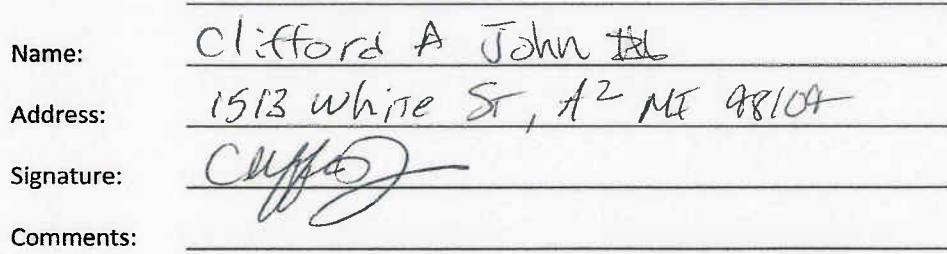 Name: Clifford A John
Address: 1513 White St, A² MI 48104
Signature:
Comments: